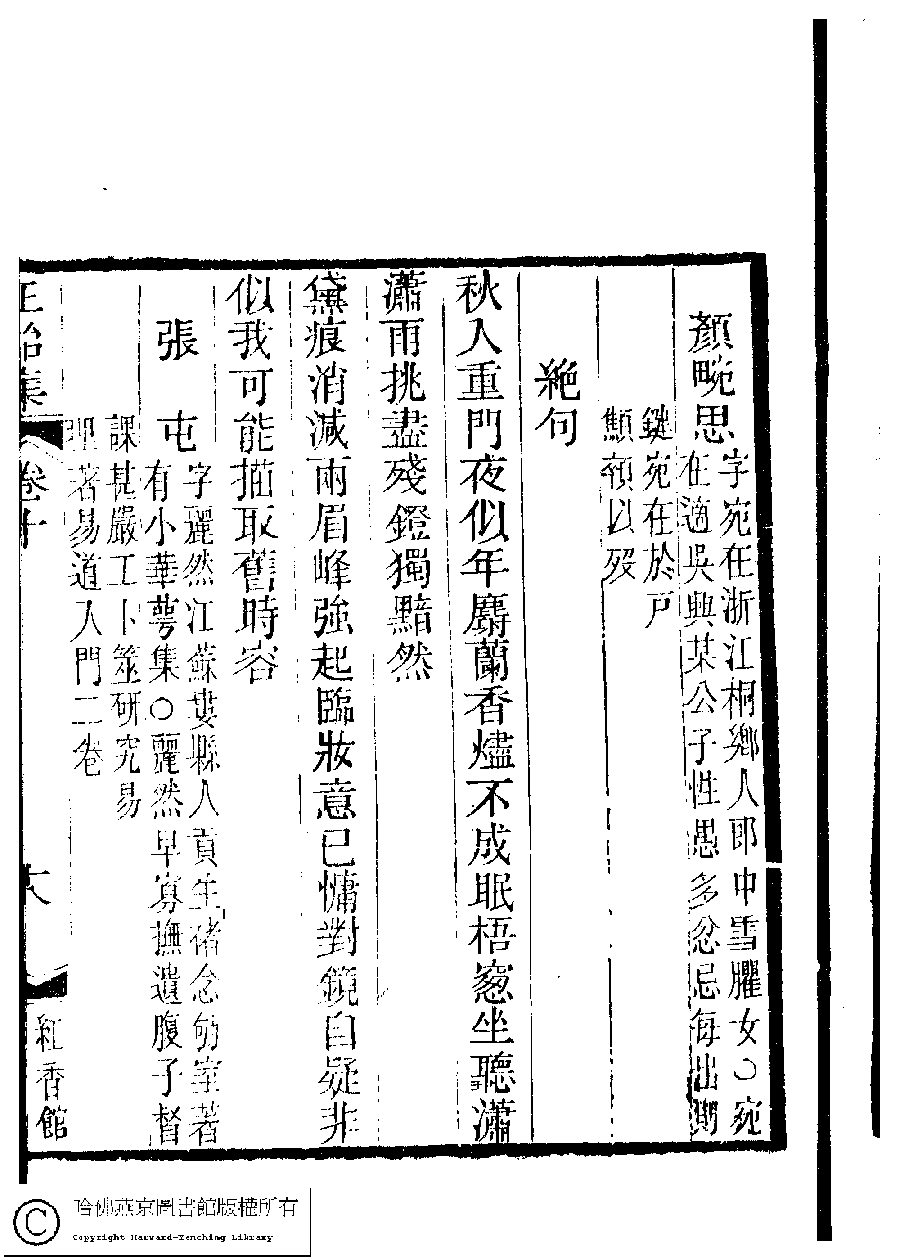 顏畹思
字宛在浙江桐鄉人郎中雪臞女○宛
在適吳興某公子性愚多忿忌每出則
鏈宛在於戶
顦顇以歿
絶句
秋入重門夜似年麝蘭香燼不成眠梧窻坐聽瀟
瀟雨挑盡殘鐙獨黯然
黛痕消減兩眉峰強起臨妝意已慵對鏡自疑非
似我可能描取舊時容
張屯
字麗然江蘇婁縣人貢生 念 室著
有小華萼集○麗然早寡撫遺腹子督
課甚嚴工卜筮硏究易
理著易道入門二卷
正始集
卷十
六
紅香館
哈佛燕京圖書館版權所有
Copyright Harvard-Yenching Library